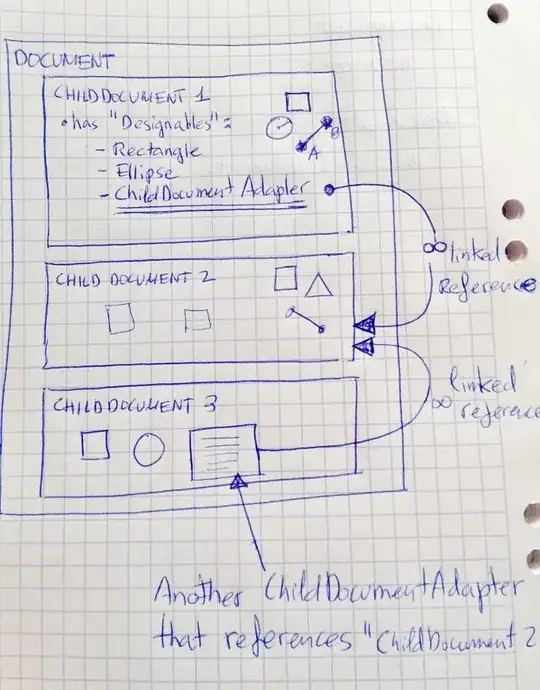 DOCUMENT
CHILDDOCUMENT 1
• has "Designables":
- Rectangle
- Ellipse
- ChildDocument Adapter
A
B
∞ linked
Reference
CHILD DOCUMENT 2
CHILDDOCUMENT 3
linked
∞ reference
Another ChildDocumentAdapter
that references "ChildDocument 2